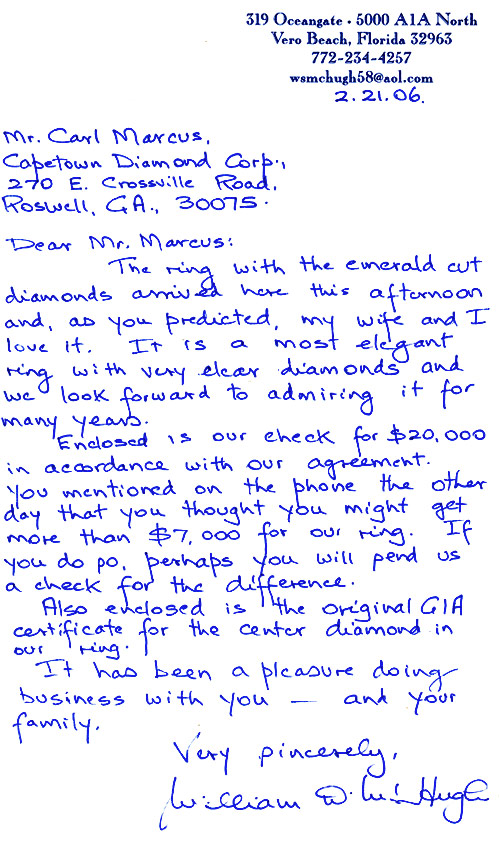 319 Oceangate • 5000 A1A North
Vero Beach, Florida 32963
772-234-4257
wsmchugh58@aol.com
2.21.06.
Mr. Carl Marcus,
Capetown Diamond Corp.,
270 E. Crossville Road,
Roswell, GA., 30075.
Dear Mr. Marcus:
The ring with the emerald cut
diamonds arrived here this afternoon
and, as you predicted, my wife and I
love it. It is a most elegant
ring with very clear diamonds and
we look forward to admiring it for
many years.
Enclosed is our check for $20,000
in accordance with our agreement.
You mentioned on the phone the other
day that you thought you might get
more than $7,000 for our ring. If
you do so, perhaps you will send us
a check for the difference.
Also enclosed is the original GIA
certificate for the center diamond in
our ring.
It has been a pleasure doing
business with you — and your
family.
Very sincerely,
William D. McHugh